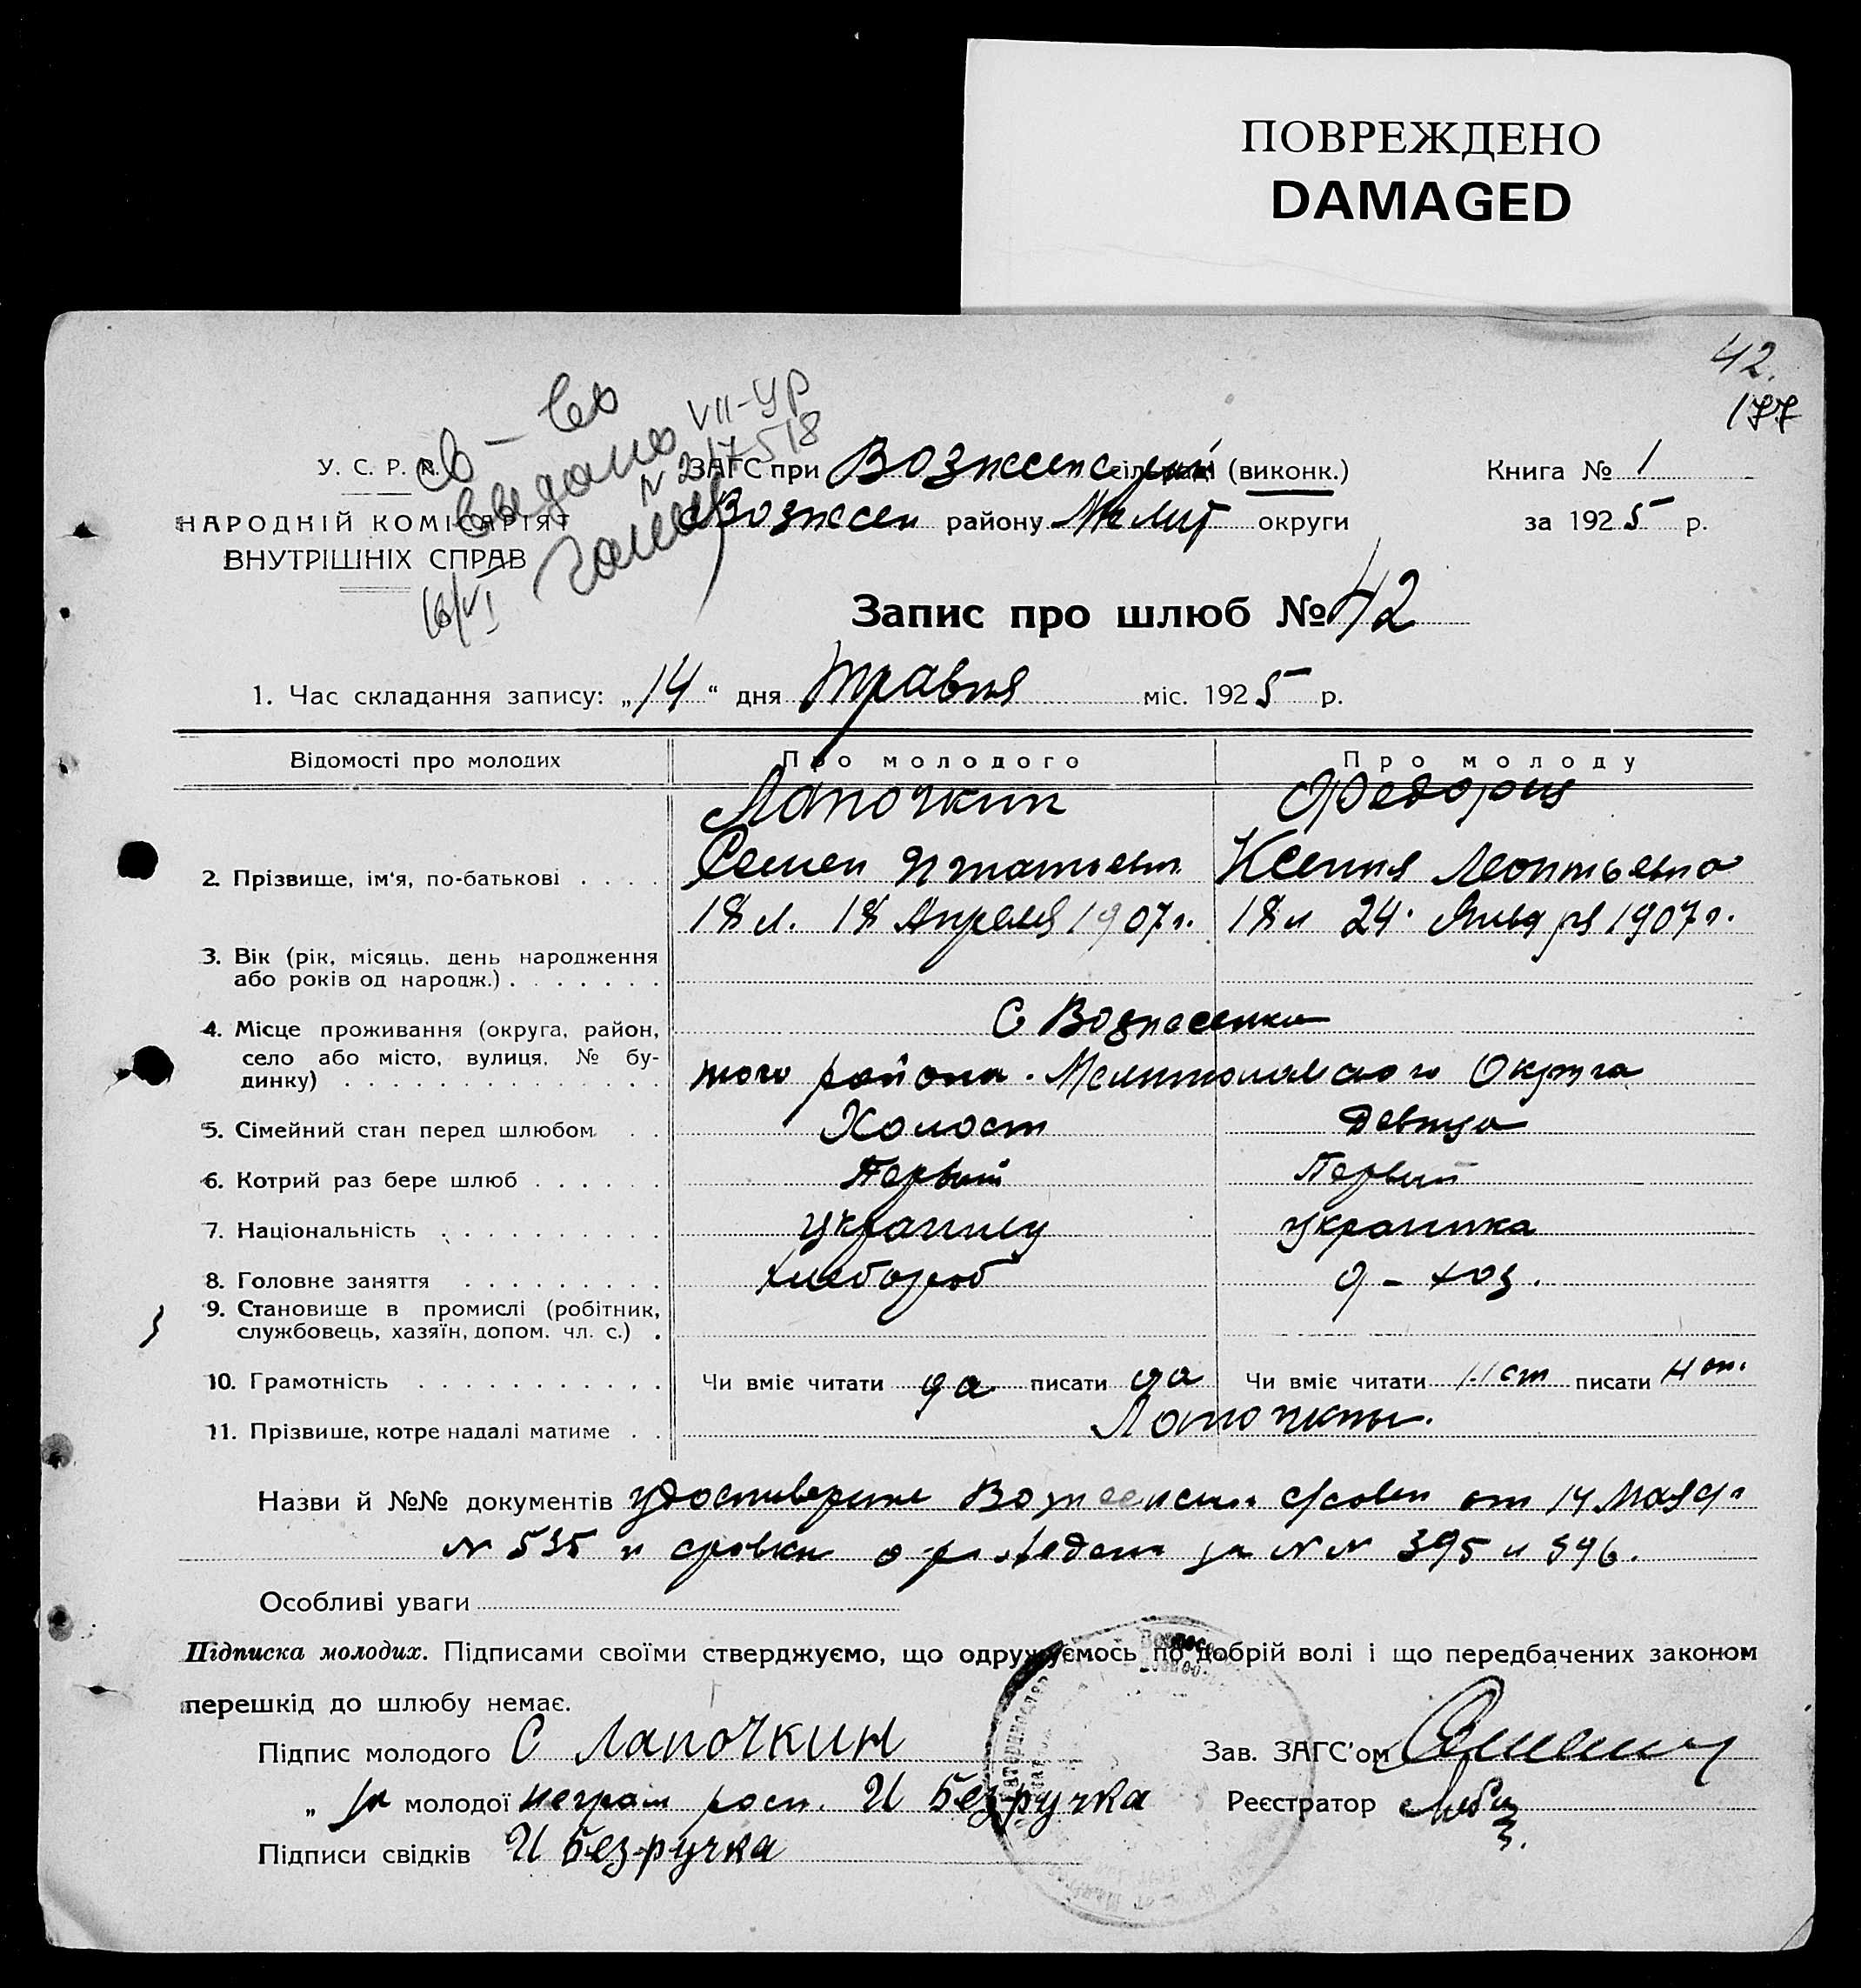 ПОВРЕЖДЕНО
DAMAGED
42.
177
Св-во
выдано VII-УР
N 217518
16/VI
У. С. Р. Р.
НАРОДНІЙ КОМІСАРІЯТ
ВНУТРІШНІХ СПРАВ
ЗАГС при Вознесенск сільраді (виконк.)
Вознесен району Мелит округи
Книга № 1
за 1925 р.
Запис про шлюб № 42
1. Час складання запису: „14" дня травня міс. 1925 р.
Відомості про молодих
Про молодого
Про молоду
Лапочкин
Федорця
2. Прізвище, ім'я, по-батькові
Семен Игнатьевич
Ксения Леонтьевна
18 л. 18 Апреля 1907 г.
18 л 24 Января 1907 г.
3. Вік (рік, місяць, день народження
або років од народж.)
4. Місце проживання (округа, район,
село або місто, вулиця, № бу-
динку)
С Вознесенка
того района. Мелитопольского Округа
5. Сімейний стан перед шлюбом
Холост
Девица
6. Котрий раз бере шлюб
Первый
Первый
7. Національність
украинец
украинка
8. Головне заняття
хлебороб
д-хоз.
9. Становище в промислі (робітник,
службовець, хазяїн, допом. чл. с.)
10. Грамотність
Чи вміє читати да писати да
Чи вміє читати нет писати нет.
11. Прізвище, котре надалі матиме
Лапочкины.
Назви й №№ документів удостоверение Вознесенск с/совет от 14 Мая с/г
N 535 и справки о рождении за N N 395 и 396.
Особливі уваги
Підписка молодих. Підписами своїми стверджуємо, що одружуємось по добрій волі і що передбачених законом
перешкід до шлюбу немає.
Підпис молодого С Лапочкин
Зав. ЗАГС'ом
„ за молодої неграм расп. И Безручка
Реєстратор
Підписи свідків И Безручка